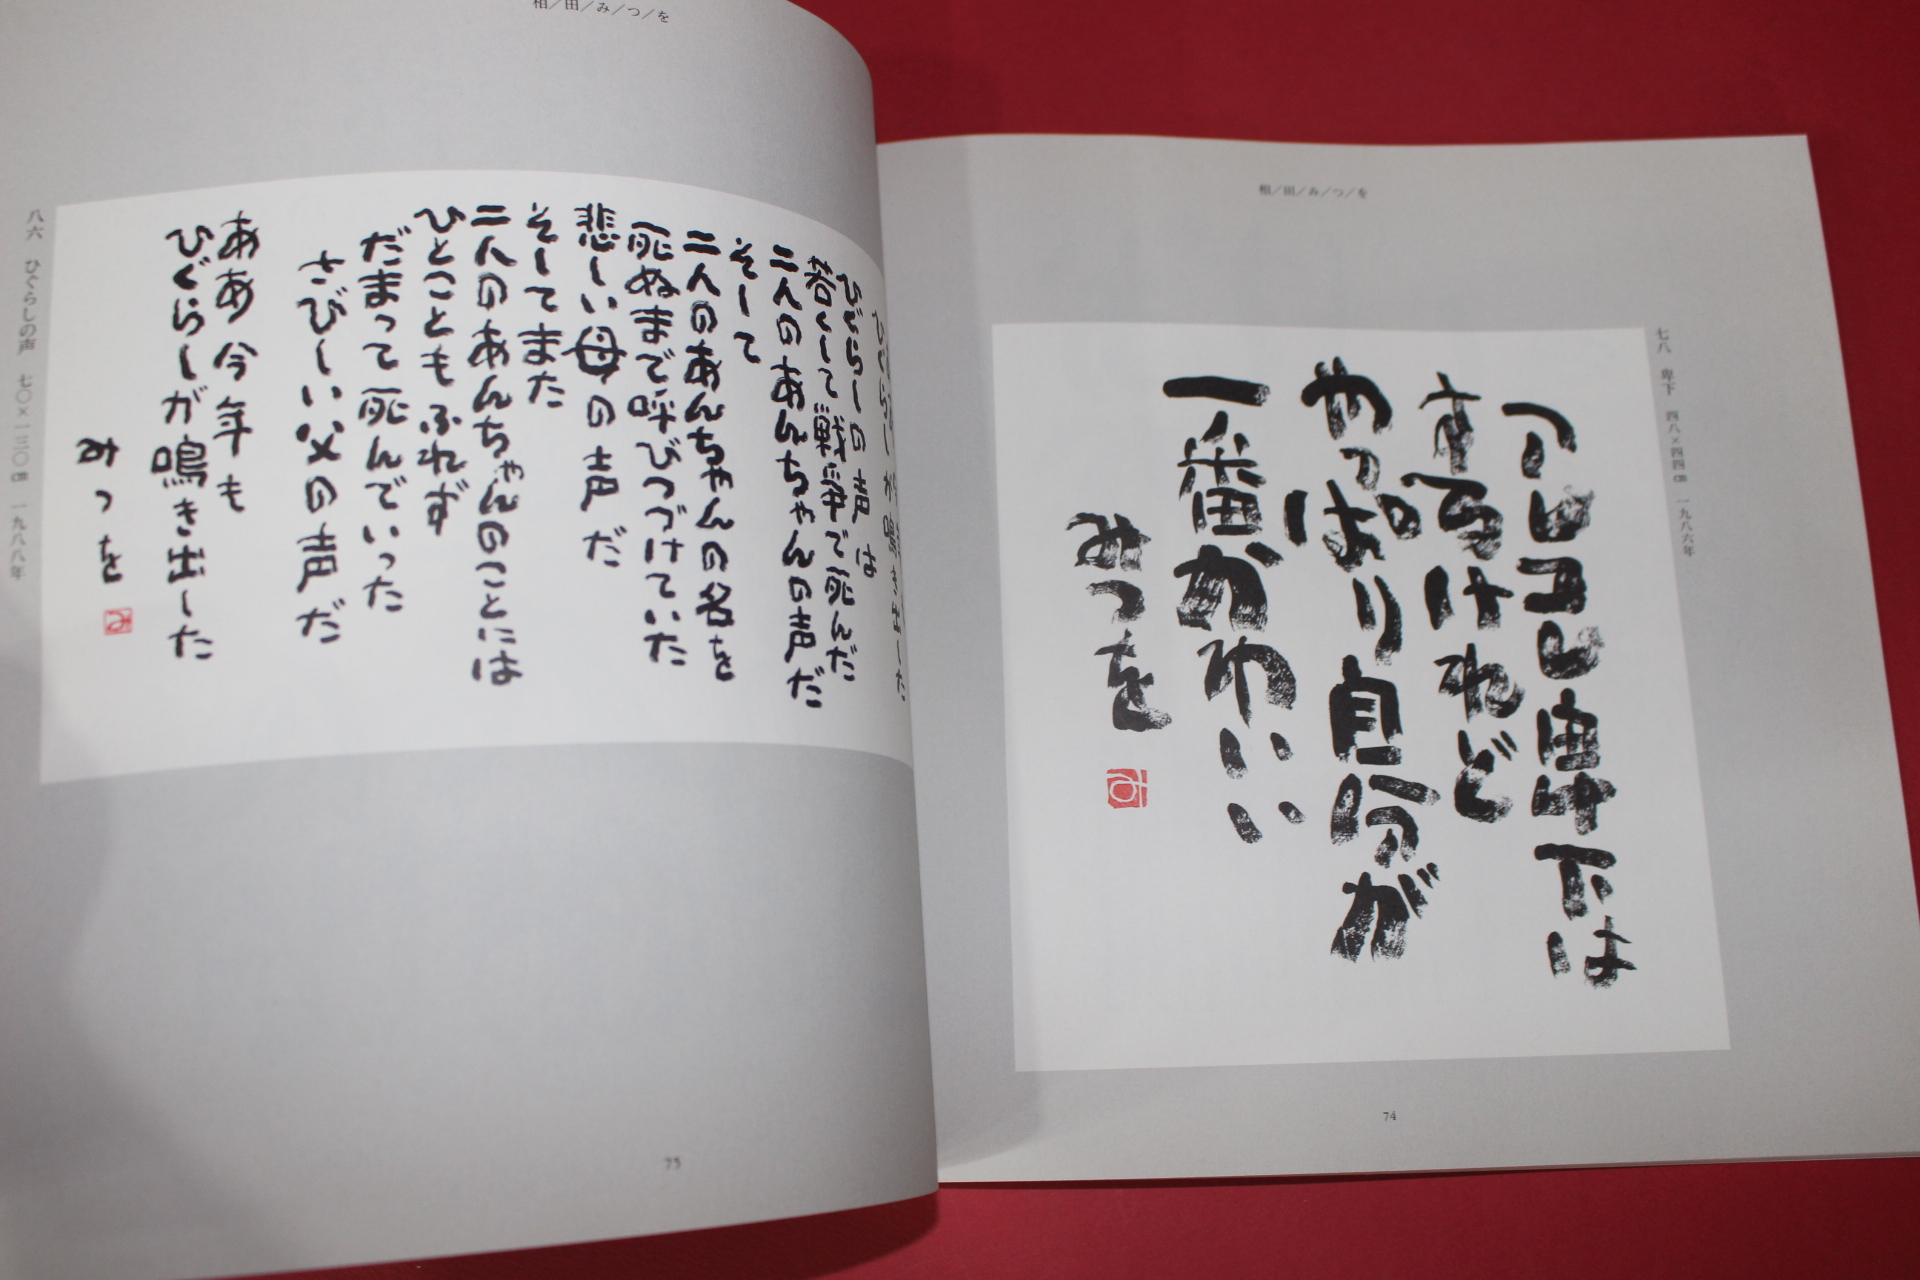 相／田／み／つ／を
七八　卑下　四八×四四㎝　一九八六年
アレコレ卑下は
するけれど
やっぱり自分が
一番かわいい
みつを
74
相／田／み／つ／を
ひぐらしが鳴き出した
ひぐらしの声は
若くして戦争で死んだ
二人のあんちゃんの声だ
そして
二人のあんちゃんの名を
死ぬまで呼びつづけていた
悲しい母の声だ
そしてまた
二人のあんちゃんのことには
ひとこともふれず
だまって死んでいった
さびしい父の声だ
ああ今年も
ひぐらしが鳴き出した
みつを
八六　ひぐらしの声　七〇×一三〇㎝　一九八八年
75